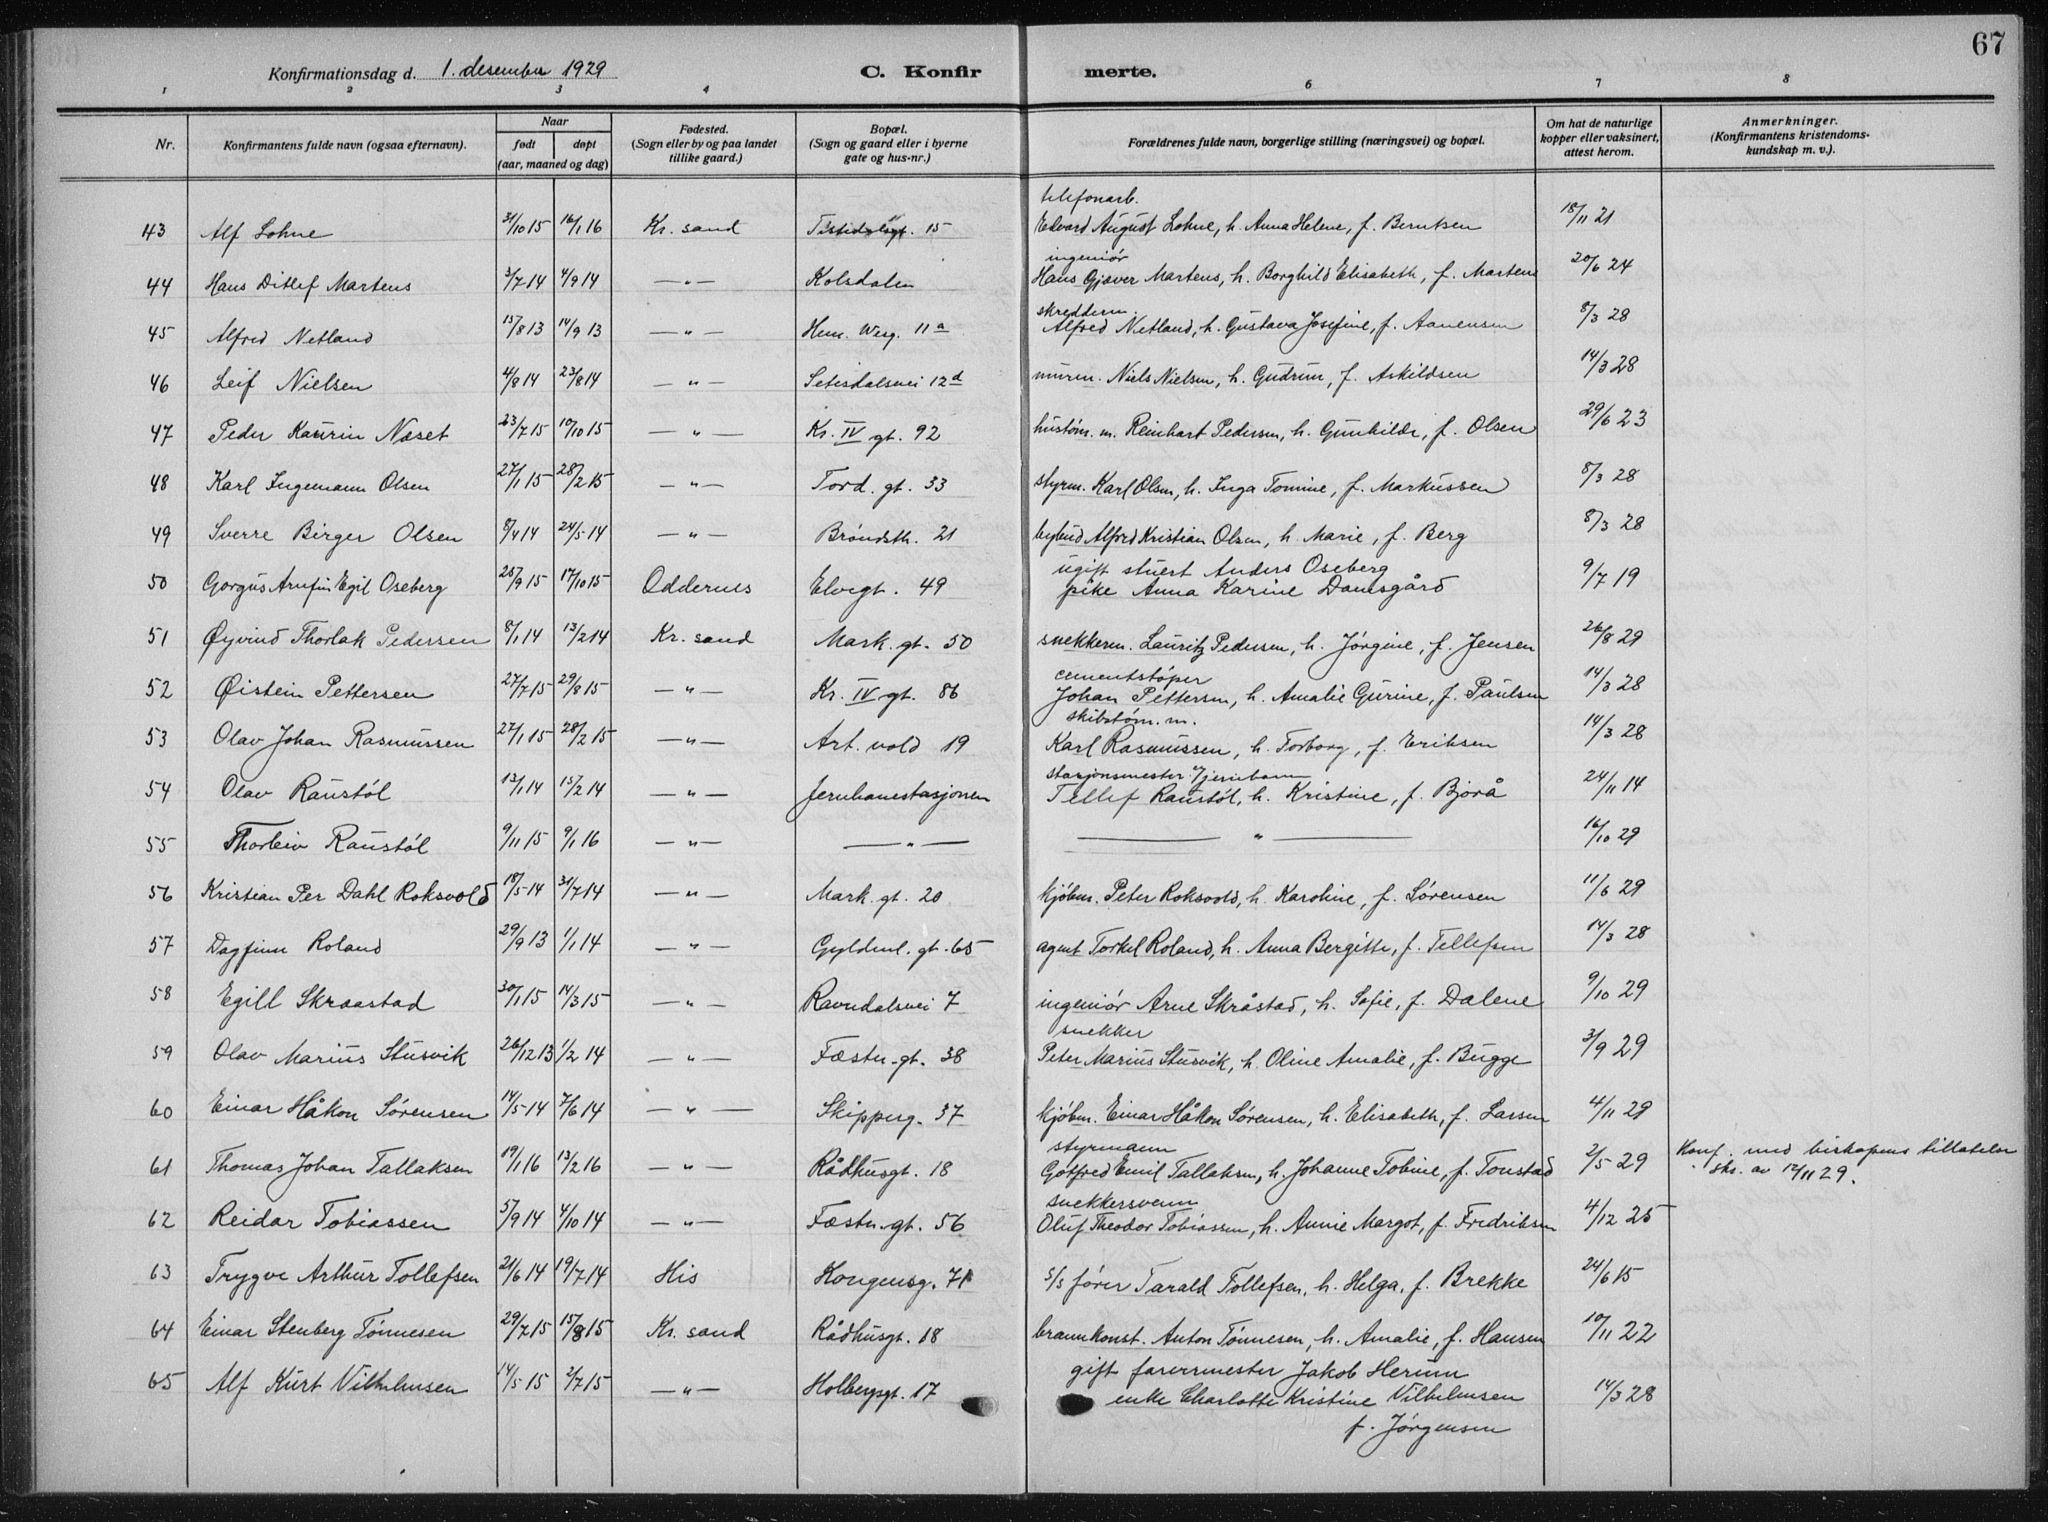 67
Konfirmationsdag d. 1. desember 1929 C. Konfirmerte.
1 2 3 4 6 7 8
Nr. Konfirmantens fulde navn (ogsaa efternavn). Naar født døpt (aar, maaned og dag) Fødested. (Sogn eller by og paa landet tillike gaard.) Bopæl. (Sogn og gaard eller i byerne gate og hus-nr.) Forældrenes fulde navn, borgerlige stilling (næringsvei) og bopæl. Om hat de naturlige kopper eller vaksinert, attest herom. Anmerkninger. (Konfirmantens kristendoms-kundskap m. v.).
telefonarb.
43 Alf Lohne 31/10 15 16/1 16 Kr. sand 15 Edvard August Lohne, h. Anna Helene, f. Berntsen 18/11 21
ingeniør
44 Hans Ditlef Martens 3/7 14 4/9 14 —"— Kolsdalen Hans Gjæver Martens, h. Borghild Elisabeth, f. Martens 20/6 24
skredderm.
45 Alfred Netland 15/8 13 14/9 13 —"— Hen. Werg. 11a Alfred Netland, h. Gustava Josefine, f. Aanensen 8/3 28
46 Leif Nielsen 4/8 14 23/8 14 —"— Setesdalsvei 12d murm. Niels Nielsen, h. Gudrun, f. Askildsen 14/3 28
47 Peder Kaurin Næset 23/7 15 10/10 15 —"— Kr. IV gt. 92 hustøm. m. Reinhart Pedersen, h. Gunhilde, f. Olsen 29/6 23
48 Karl Ingemann Olsen 27/1 15 28/2 15 —"— Tord. gt. 33 styrm. Karl Olsen, h. Inga Tomine, f. Markussen 8/3 28
49 Sverre Birger Olsen 8/4 14 24/5 14 —"— Brøndstk. 21 bybud Alfred Kristian Olsen, h. Marie, f. Berg 8/3 28
ugift stuert Anders Oseberg
50 Gorgus Arnfin Egil Oseberg 25/9 15 17/10 15 Oddernes Elvegt. 49 pike Anna Karine Damsgård 9/7 19
51 Øyvind Thorlak Pedersen 8/1 14 13/2 14 Kr. sand Mark. gt. 50 snekkerm. Lauritz Pedersen, h. Jørgine, f. Jensen 26/8 29
cementstøper
52 Øistein Pettersen 27/7 15 29/8 15 —"— Kr. IV gt. 86 Johan Pettersen, h. Amalie Gurine, f. Paulsen 14/3 28
skibstøm. m.
53 Olav Johan Rasmussen 27/1 15 28/2 15 —"— Art. vold 19 Karl Rasmussen, h. Torborg, f. Eriksen 14/3 28
stasjonsmester v/jernbanen
54 Olav Raustøl 13/1 14 15/2 14 —"— Jernbanestasjonen Tellef Raustøl, h. Kristine, f. Bjorå 24/11 14
55 Thorleiv Raustøl 9/11 15 9/1 16 —"— —"— —"— 16/10 29
56 Kristian Per Dahl Roksvold 18/5 14 31/7 14 —"— Mark. gt. 20 kjøbm. Peter Roksvold, h. Karoline, f. Sørensen 11/6 29
57 Dagfinn Roland 29/9 13 1/1 14 —"— Gyldenl. gt. 65 agent Torkel Roland, h. Anna Bergitte, f. Tellefsen 14/3 28
58 Egill Skraastad 30/1 15 14/3 15 —"— Ravnedalsvei 7 ingeniør Arne Skråstad, h. Sofie, f. Dalene 9/10 29
snekker
59 Olav Marius Stusvik 26/12 13 1/2 14 —"— Fæstn. gt. 38 Peter Marius Stusvik, h. Oline Amalie, f. Bugge 3/9 29
60 Einar Håkon Sørensen 14/5 14 7/6 14 —"— Skipperg. 37 kjøbm. Einar Håkon Sørensen, h. Elisabeth, f. Larsen 4/11 29
styrmann
61 Thomas Johan Tallaksen 19/1 16 13/2 16 —"— Rådhusgt. 18 Gotfred Emil Tallaksen, h. Johanne Tobine, f. Tonstad 2/5 29 Konf. med biskopens tillatelse
skr. av 12/11 29.
snekkersvenn
62 Reidar Tobiassen 5/9 14 4/10 14 —"— Fæstn. gt. 56 Oluf Theodor Tobiassen, h. Annie Margot, f. Fredriksen 4/12 25
63 Trygve Arthur Tollefsen 21/6 14 19/7 14 His Kongensg. 71 s/s fører Tarald Tollefsen, h. Helga, f. Brekke 24/6 15
64 Einar Stenberg Tønnesen 29/7 15 15/8 15 Kr. sand Rådhusgt. 18 brannkonst. Anton Tønnesen, h. Amalie, f. Hansen 10/11 22
gift farvermester Jakob Herum
65 Alf Kurt Vilhelmsen 14/5 15 2/7 15 —"— Holbergsgt. 17 enke Charlotte Kristine Vilhelmsen 14/3 28
f. Jørgensen